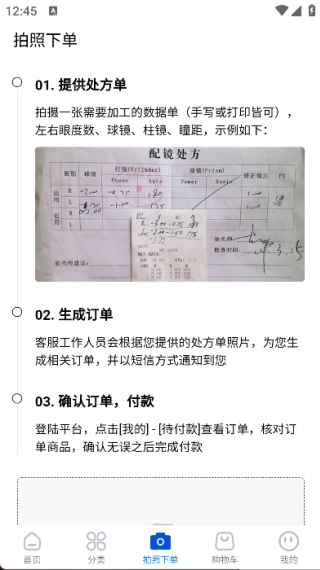 12:45
拍照下单
01. 提供处方单
拍摄一张需要加工的数据单（手写或打印皆可），
左右眼度数、球镜、柱镜、瞳距，示例如下：
配镜处方
球镜
柱镜(Cylinder)
棱镜(Prism)
矫正视力
PD
Power
Axis
Power
Basis
R
L
R
L
验光师建议：
验光师：
检查时间：
02. 生成订单
客服工作人员会根据您提供的处方单照片，为您生
成相关订单，并以短信方式通知到您
03. 确认订单，付款
登陆平台，点击[我的] - [待付款]查看订单，核对订
单商品，确认无误之后完成付款
首页
分类
拍照下单
购物车
我的